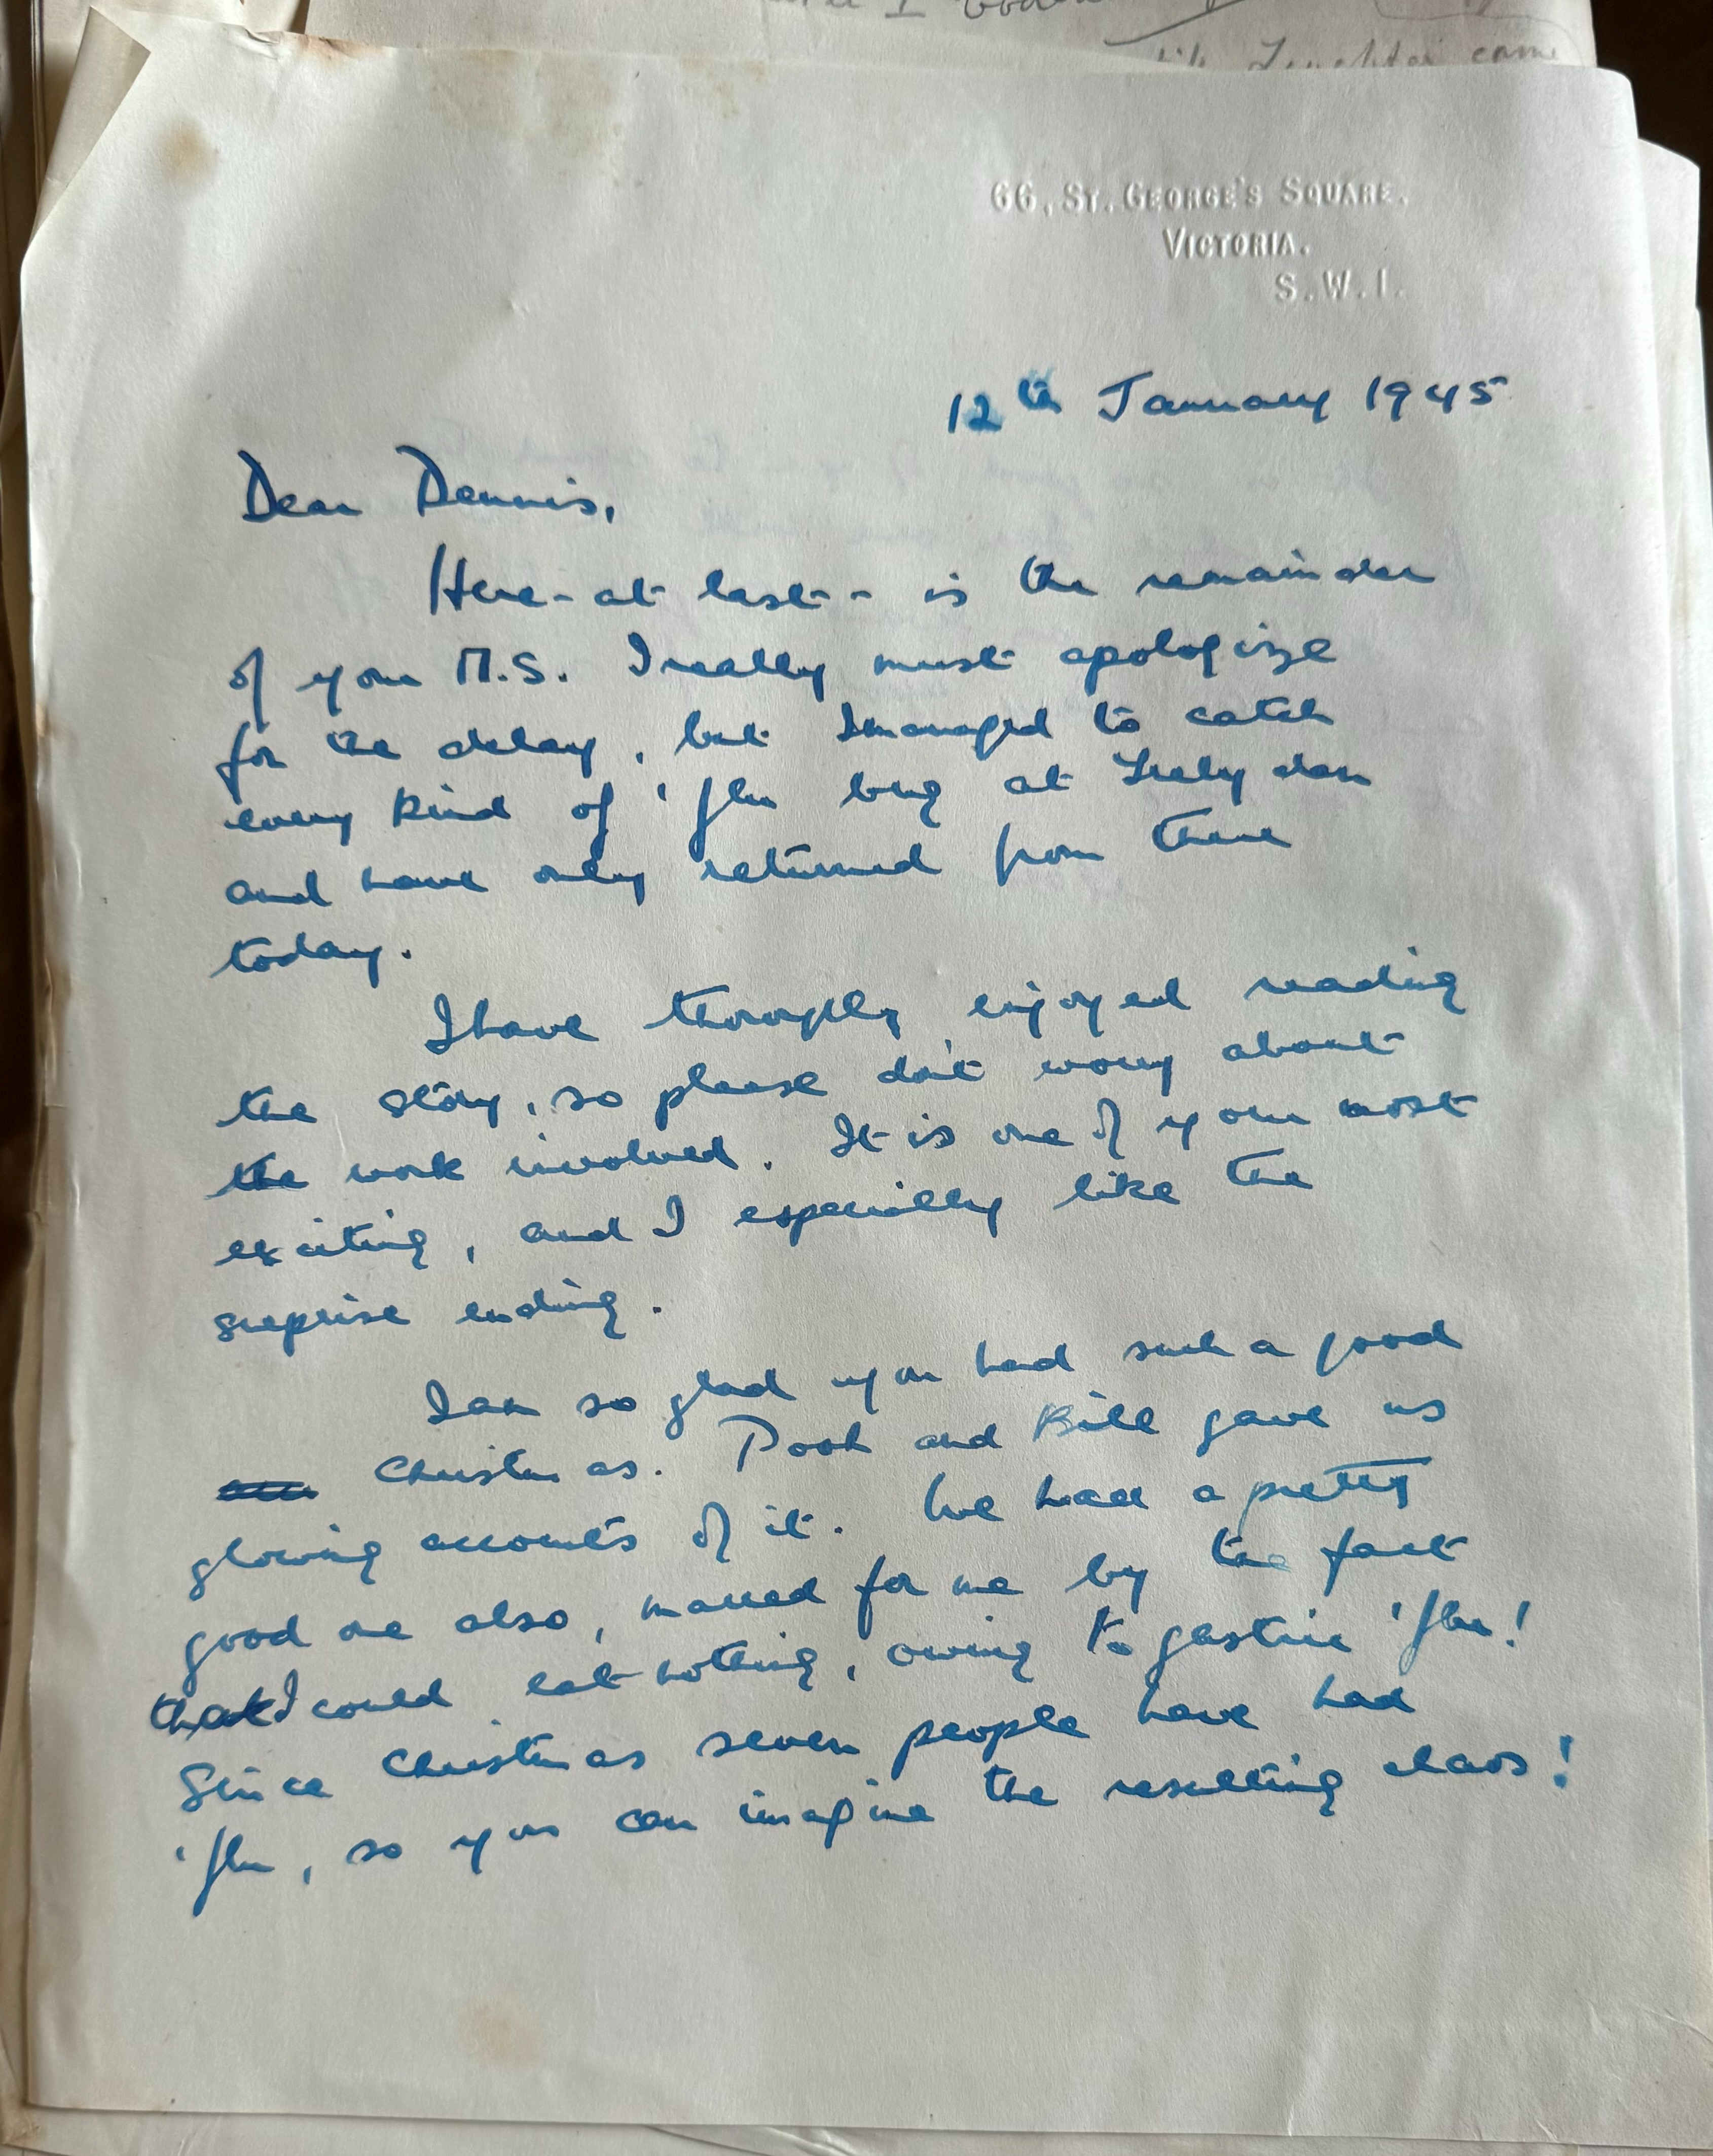 66, St. George's Square.
Victoria.
S.W.1.
12th January 1945
Dear Dennis,
Here - at last - is the remainder
of your M.S. I really must apologize
for the delay, but I managed to catch
every kind of 'flu bug at
and have only returned from there
today.
I have thoroughly enjoyed reading
the story, so please don't worry about
the work involved. It is one of your most
exciting, and I especially like the
surprise ending.
I am so glad you had such a good
Christmas. Pooh and Bill gave us
glowing accounts of it. We had a pretty
good one also, marred for me by the fact
that I could eat nothing, owing to gastric 'flu!
Since Christmas seven people have had
'flu, so you can imagine the resulting chaos!